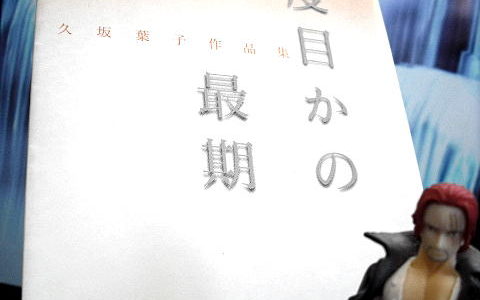 久坂葉子作品集
度目かの
最期